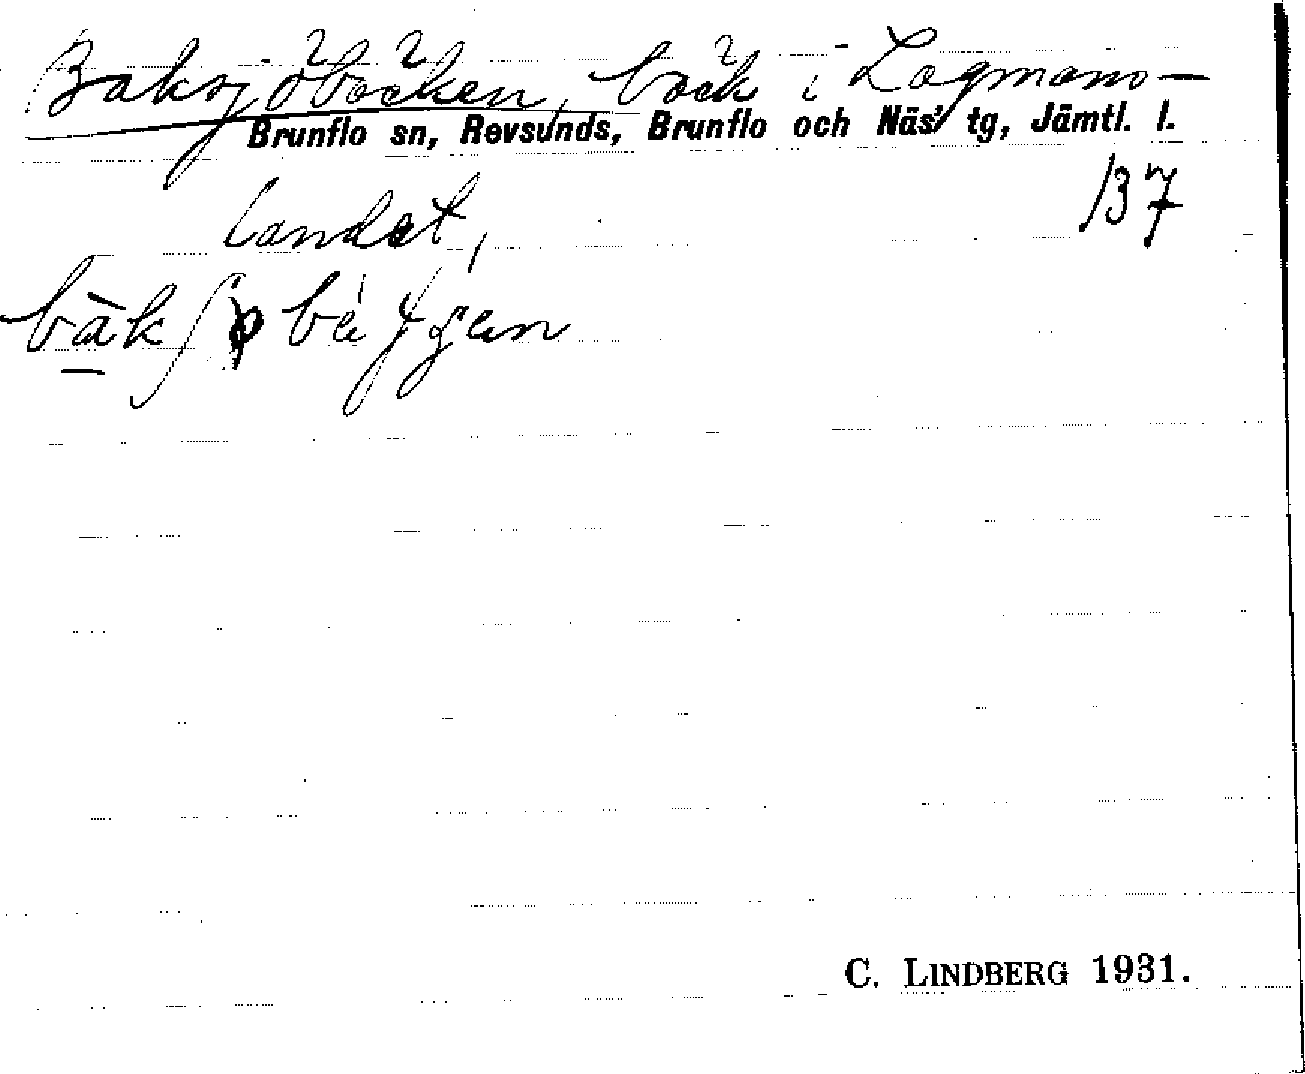 Baksjöbäcken, bäck i Lagmans-
Brunflo sn, Revsunds, Brunflo och Näs' tg, Jämtl. l.
landet,
137
C. LINDBERG 1931.